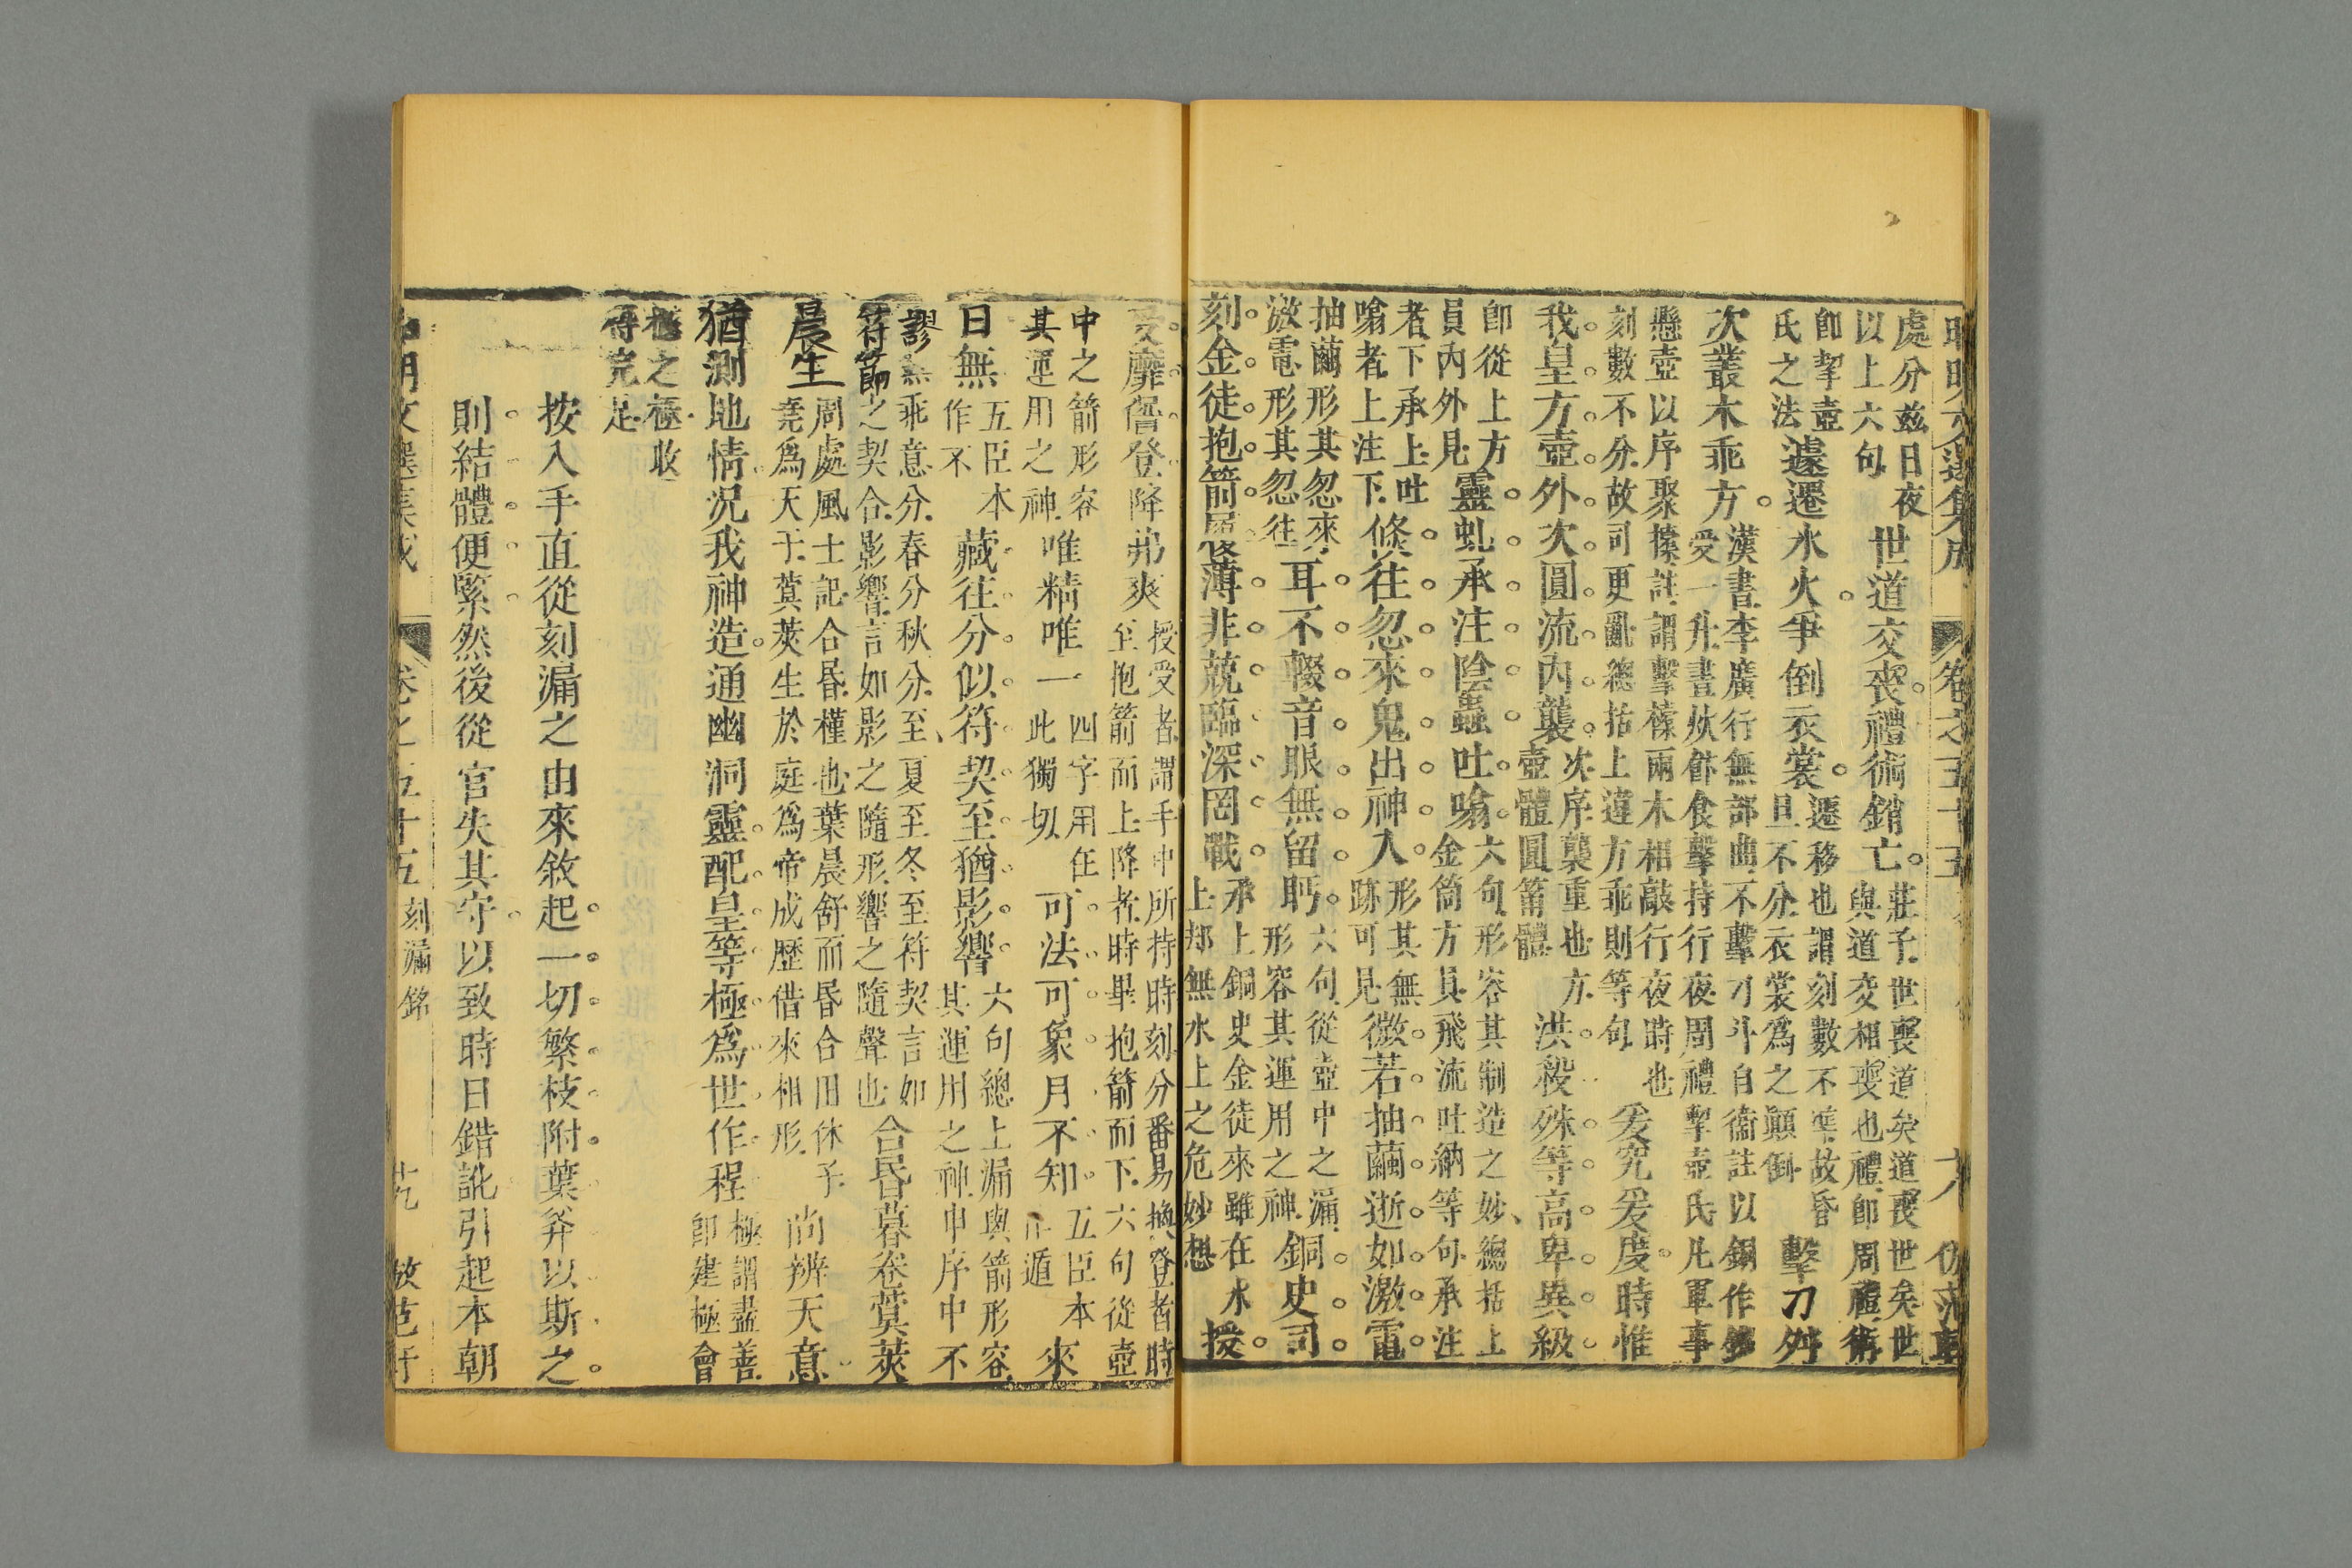 昭明文選集成 卷之五十五 六 仿范軒
處分茲日夜
以上六句 世道交喪禮術銷亡 莊子世喪道矣道喪世矣世
與道交相喪也禮即周禮術
即挈壺
氏之法 遽遷水火爭倒衣裳 遷移也謂刻數不準故昏
旦不分衣裳為之顛倒 擊刀舛
次叢木乖方 漢書李廣行無部曲不擊刁斗自衞註以銅作鐎
受一升晝炊飰食擊持行夜周禮挈壺氏凡軍事
懸壺以序聚㯿註謂擊㯿兩木相敲行夜時也
刻數不分故司更亂總括上違方乖則等句 爰究爰度時惟
我皇方壺外次圓流內襲 次序襲重也方
壺體圓筩體 洪殺殊等高卑異級
即從上方
員內外見 靈虬承注陰蟲吐噏 六句形容其制造之妙總括上
金筒方員飛流吐納等句承注
者下承上吐
噏者上注下 倏往忽來鬼出神入 形其無
跡可見 微若抽繭逝如激電
抽繭形其忽來
激電形其忽往 耳不輟音眼無留眄 六句從壺中之漏
形容其運用之神 銅史司
刻金徒抱箭履薄非兢臨深罔戰 承上銅史金徒來雖在水
上却無水上之危妙想 授
受靡諐登降弗爽 授受者謂手中所持時刻分番易換登者時
至抱箭而上降者時畢抱箭而下六句從壺
中之箭形容
其運用之神 唯精唯一 四字用在
此獨切 可法可象月不知 五臣本
作遁 來
日無 五臣本
作不 藏往分似符契至猶影響 六句總上漏與箭形容
其運用之神申序中不
謬無乖意分春分秋分至夏至冬至符契言如
符節之契合影響言如影之隨形響之隨聲也 合昏暮卷蓂莢
晨生 周處風土記合昏槿也葉晨舒而昏合田休子
堯為天子蓂莢生於庭為帝成歷借來相形 尚辨天意
猶測地情況我神造通幽洞靈配皇等極為世作程 極謂盡善
即建極會
極之極收
得完足
按入手直從刻漏之由來敘起一切繁枝附葉筭以斯之
則結體便緊然後從官失其守以致時日錯訛引起本朝
昭明文選集成 卷之五十五 刻漏銘 十九 仿范軒